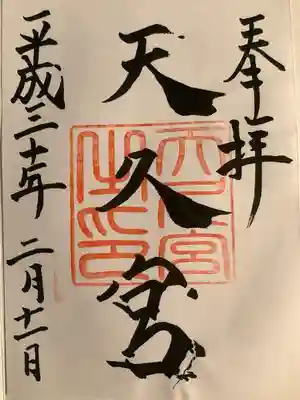 奉拝
天久宮
天久宮之印
平成三十年 二月十一日